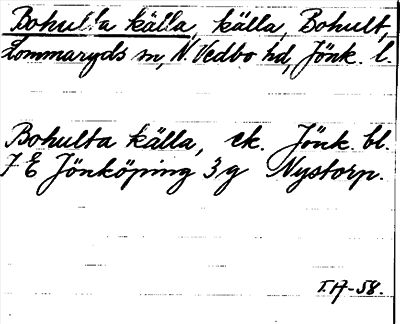 Bohulta källa, källa, Bohult,
Lommaryds sn, N. Vedbo hd, Jönk. l.
Bohulta källa, ek. Jönk. bl.
7 E Jönköping 3 g Nystorp.
T.A-58.